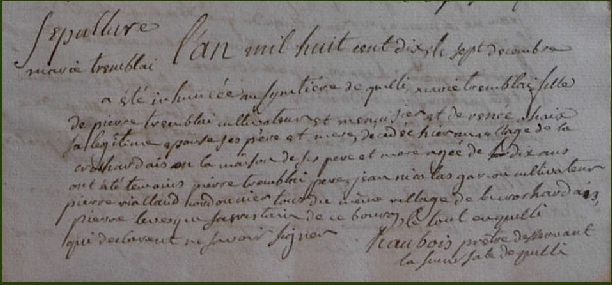 Sepulture
marie tremblai
L'an mil huit cent dix le sept decembre
a été inhumée au symetiére de quilli marie tremblai fille
de pierre tremblai cultivateur et menuisier et de renée
sa legitime epouse ses pere et mere, decedée hier au village de la
crochardais en la maison de ses pere et mere agée de dix ans
ont été temoins pierre tremblai pere, jean nicolas garson cultivateur
pierre viallaud cordonnier tous du même village de la crochardais,
pierre levesque sacristain de ce bourg le tout en quilli
qui declarent ne savoir signer
haubois prêtre desservant
la succursale de quilli